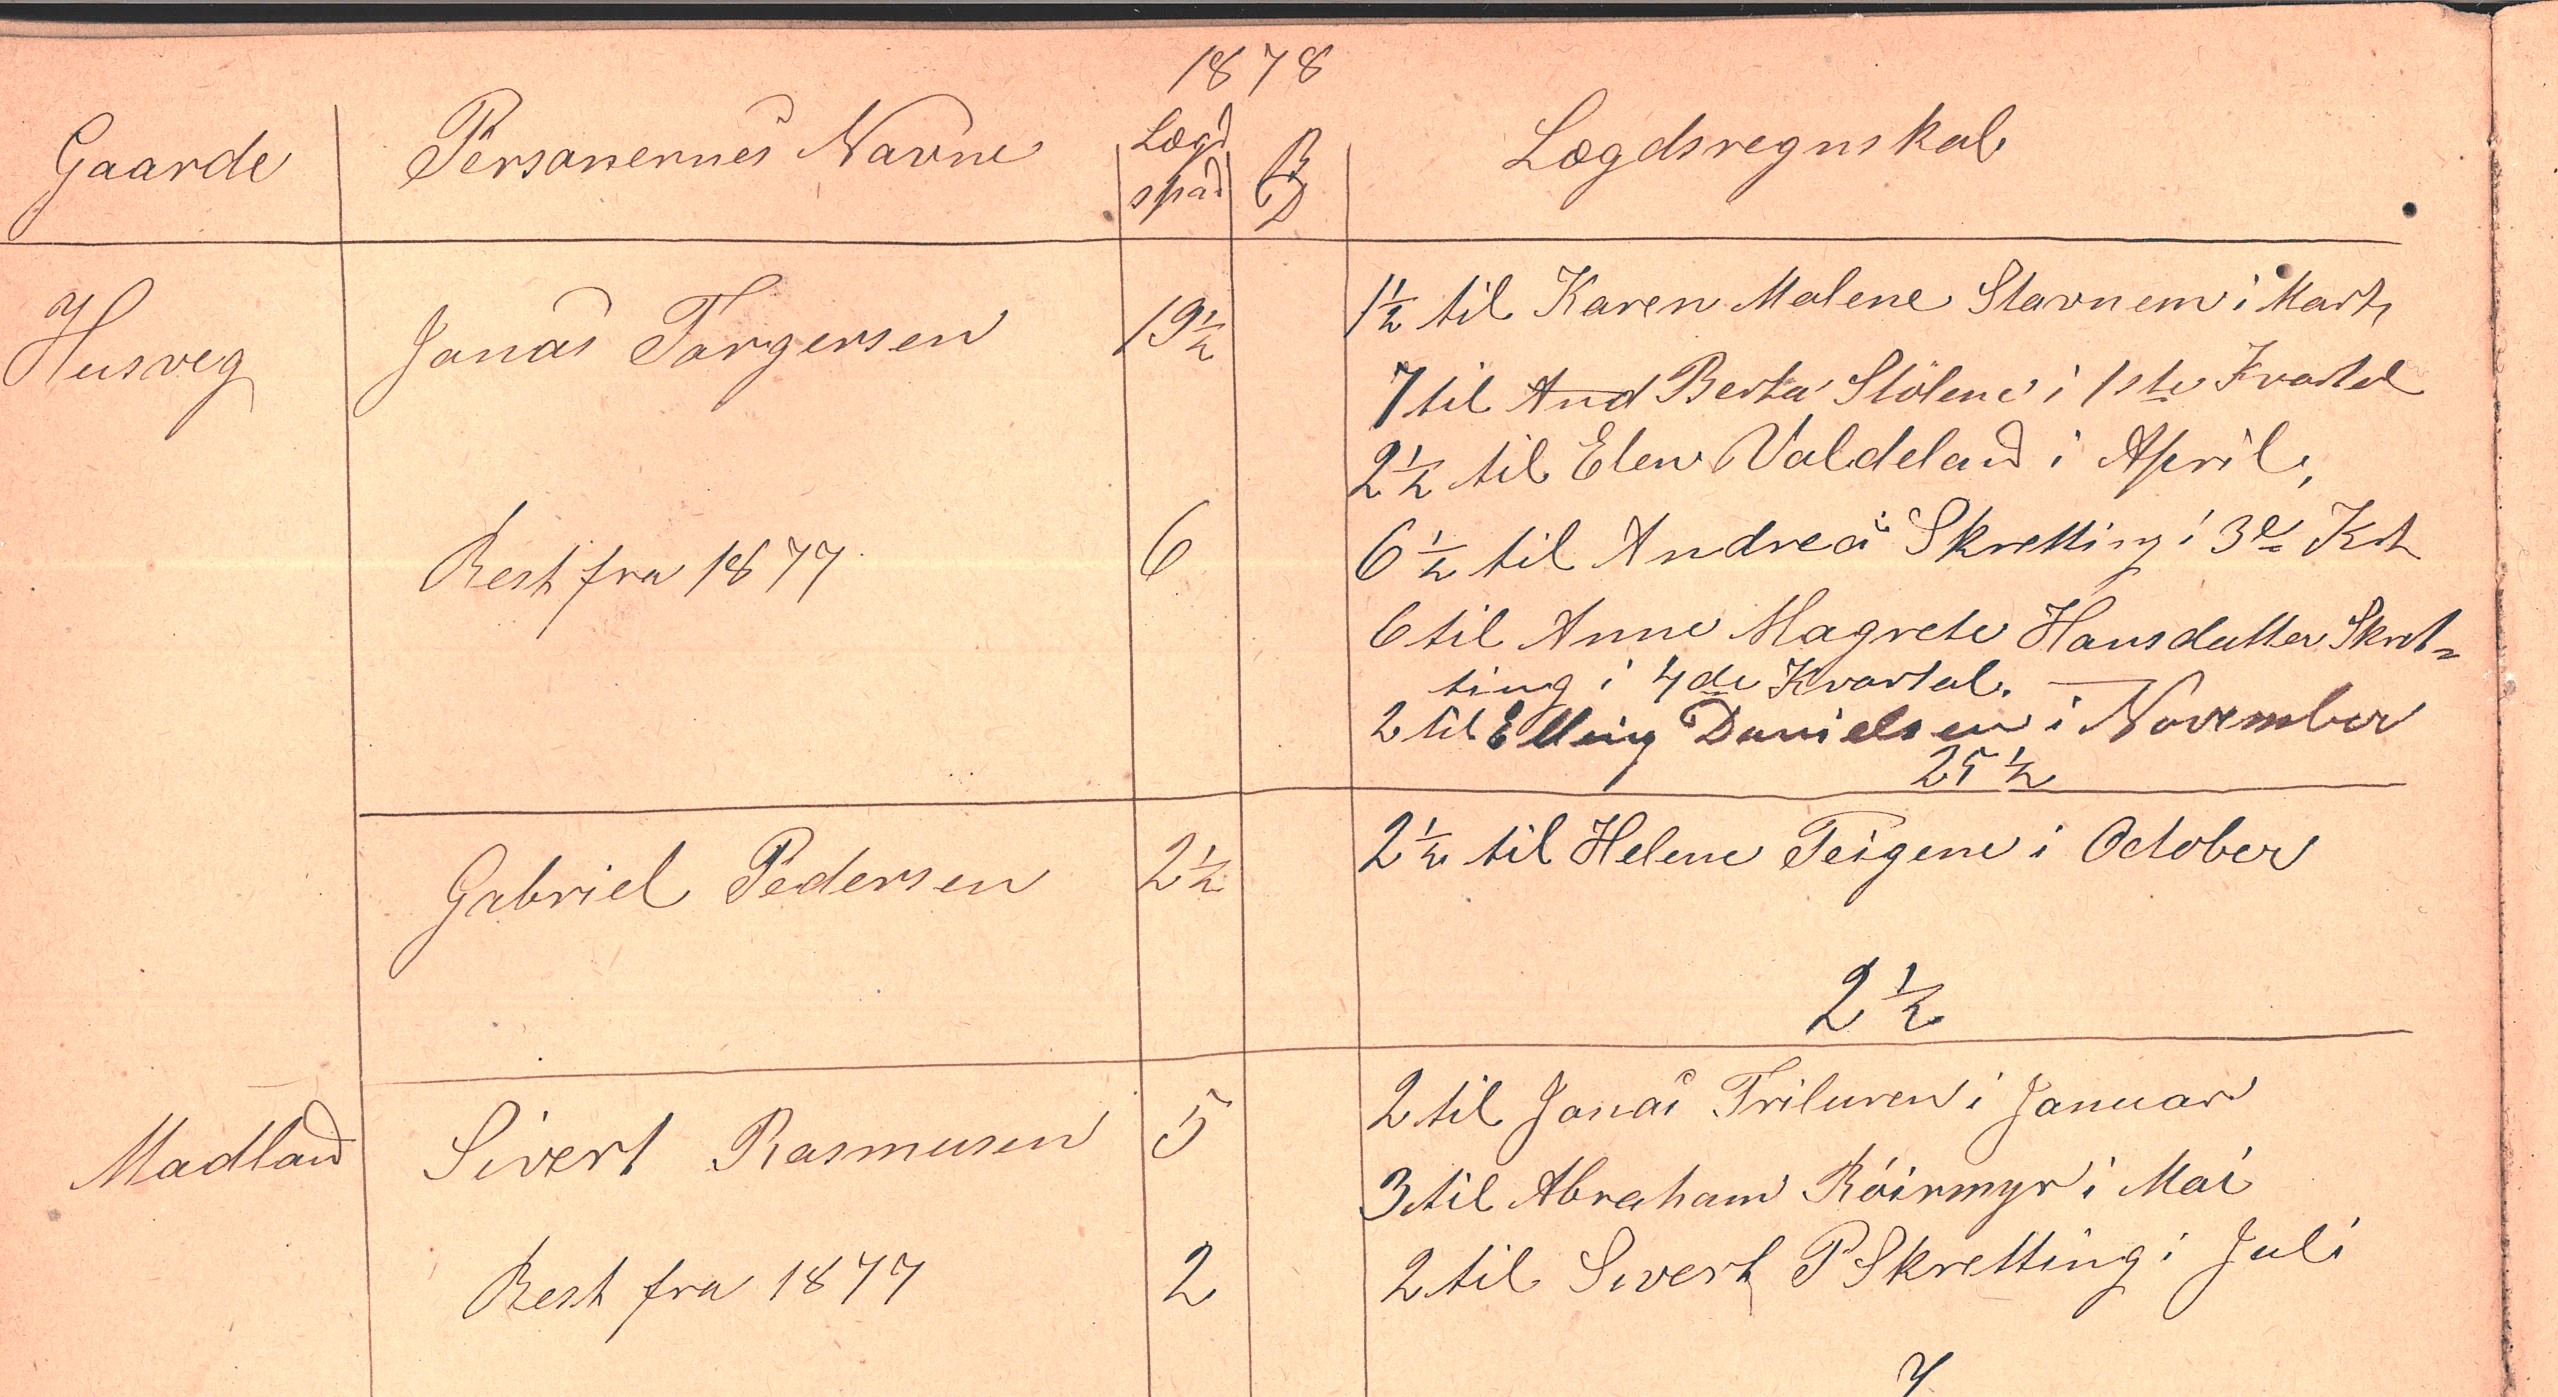 1878
Gaarde Personernes Navne Lægd Lægdsregnskab
spad
Husveg Jonas Torgersen 19½ 1½ til Karen Malene Stavnem i Marts
7 til And Berta Stölene i 1ste Kvartal
2½ til Elen Valdeland i April,
Rest fra 1877 6 6½ til Andrea Skretting i 3de Krt
6 til Anne Magrete Hansdatter Skret=
ting i 4de Kvartal.
2 til Elling Danielsen i November
25½
Gabriel Pedersen 2½ 2½ til Helene Teigene i October
2½
Madland Sivert Rasmusen 5 2 til Jonas Friluren i Januar
3 til Abraham Röirmyr i Mai
Rest fra 1877 2 2 til Sivert P Skretting i Juli
7